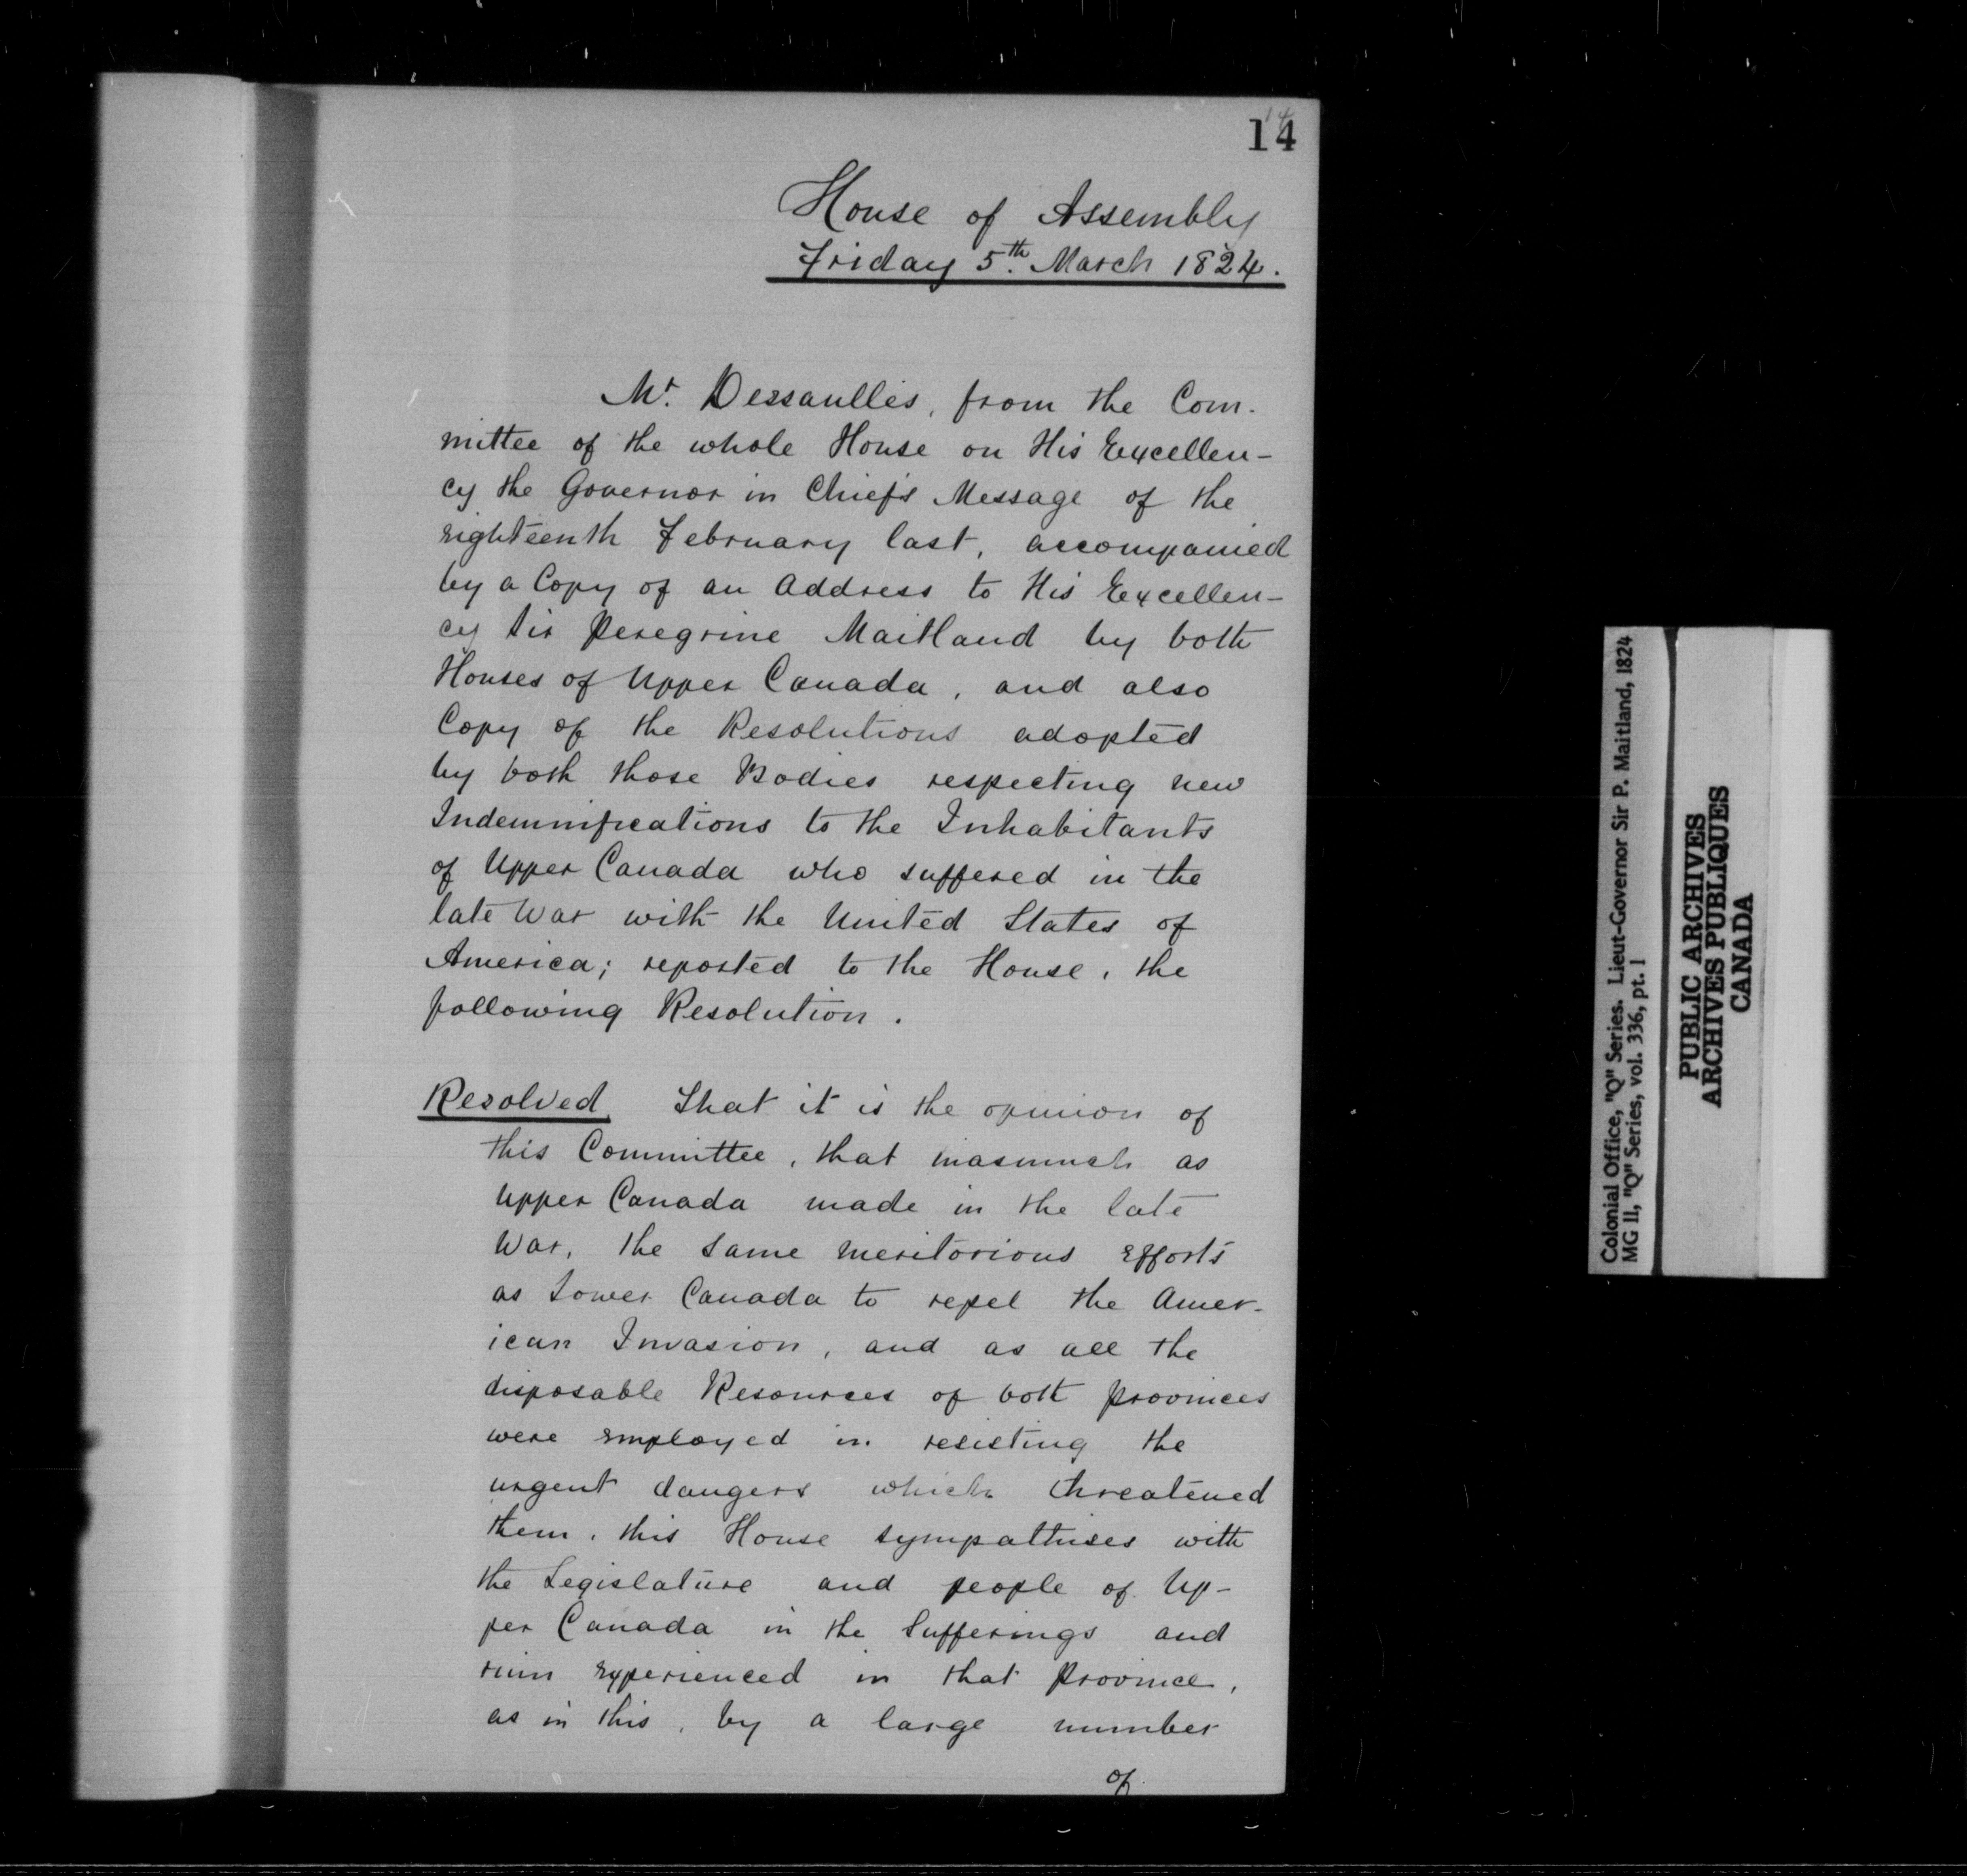 14
14
House of Assembly
Friday 5th. March 1824.
Mr. Dessaullés, from the Com-
mittee of the whole House on His Excellen-
cy the Governor in Chief's Message of the
eighteenth February last, accompanied
by a Copy of an Address to His Excellen-
cy Sir Peregrine Maitland by both
Houses of Upper Canada, and also
Copy of the Resolutions adopted
by both those Bodies respecting new
Indemnifications to the Inhabitants
of Upper Canada who suffered in the
late War with the United States of
America; reported to the House, the
following Resolution.
Resolved That it is the opinion of
this Committee, that inasmuch as
Upper Canada made in the late
War, the same meritorious efforts
as Lower Canada to repel the Amer-
ican Invasion, and as all the
disposable Resources of both provinces
were employed in resisting the
urgent dangers which threatened
them, this House sympathises with
the Legislature and people of Up-
per Canada in the Sufferings and
ruin experienced in that province,
as in this, by a large number
of
Colonial Office, "Q" Series. Lieut-Governor Sir P. Maitland, 1824
MG 11, "Q" Series, vol. 336, pt. 1
PUBLIC ARCHIVES
ARCHIVES PUBLIQUES
CANADA